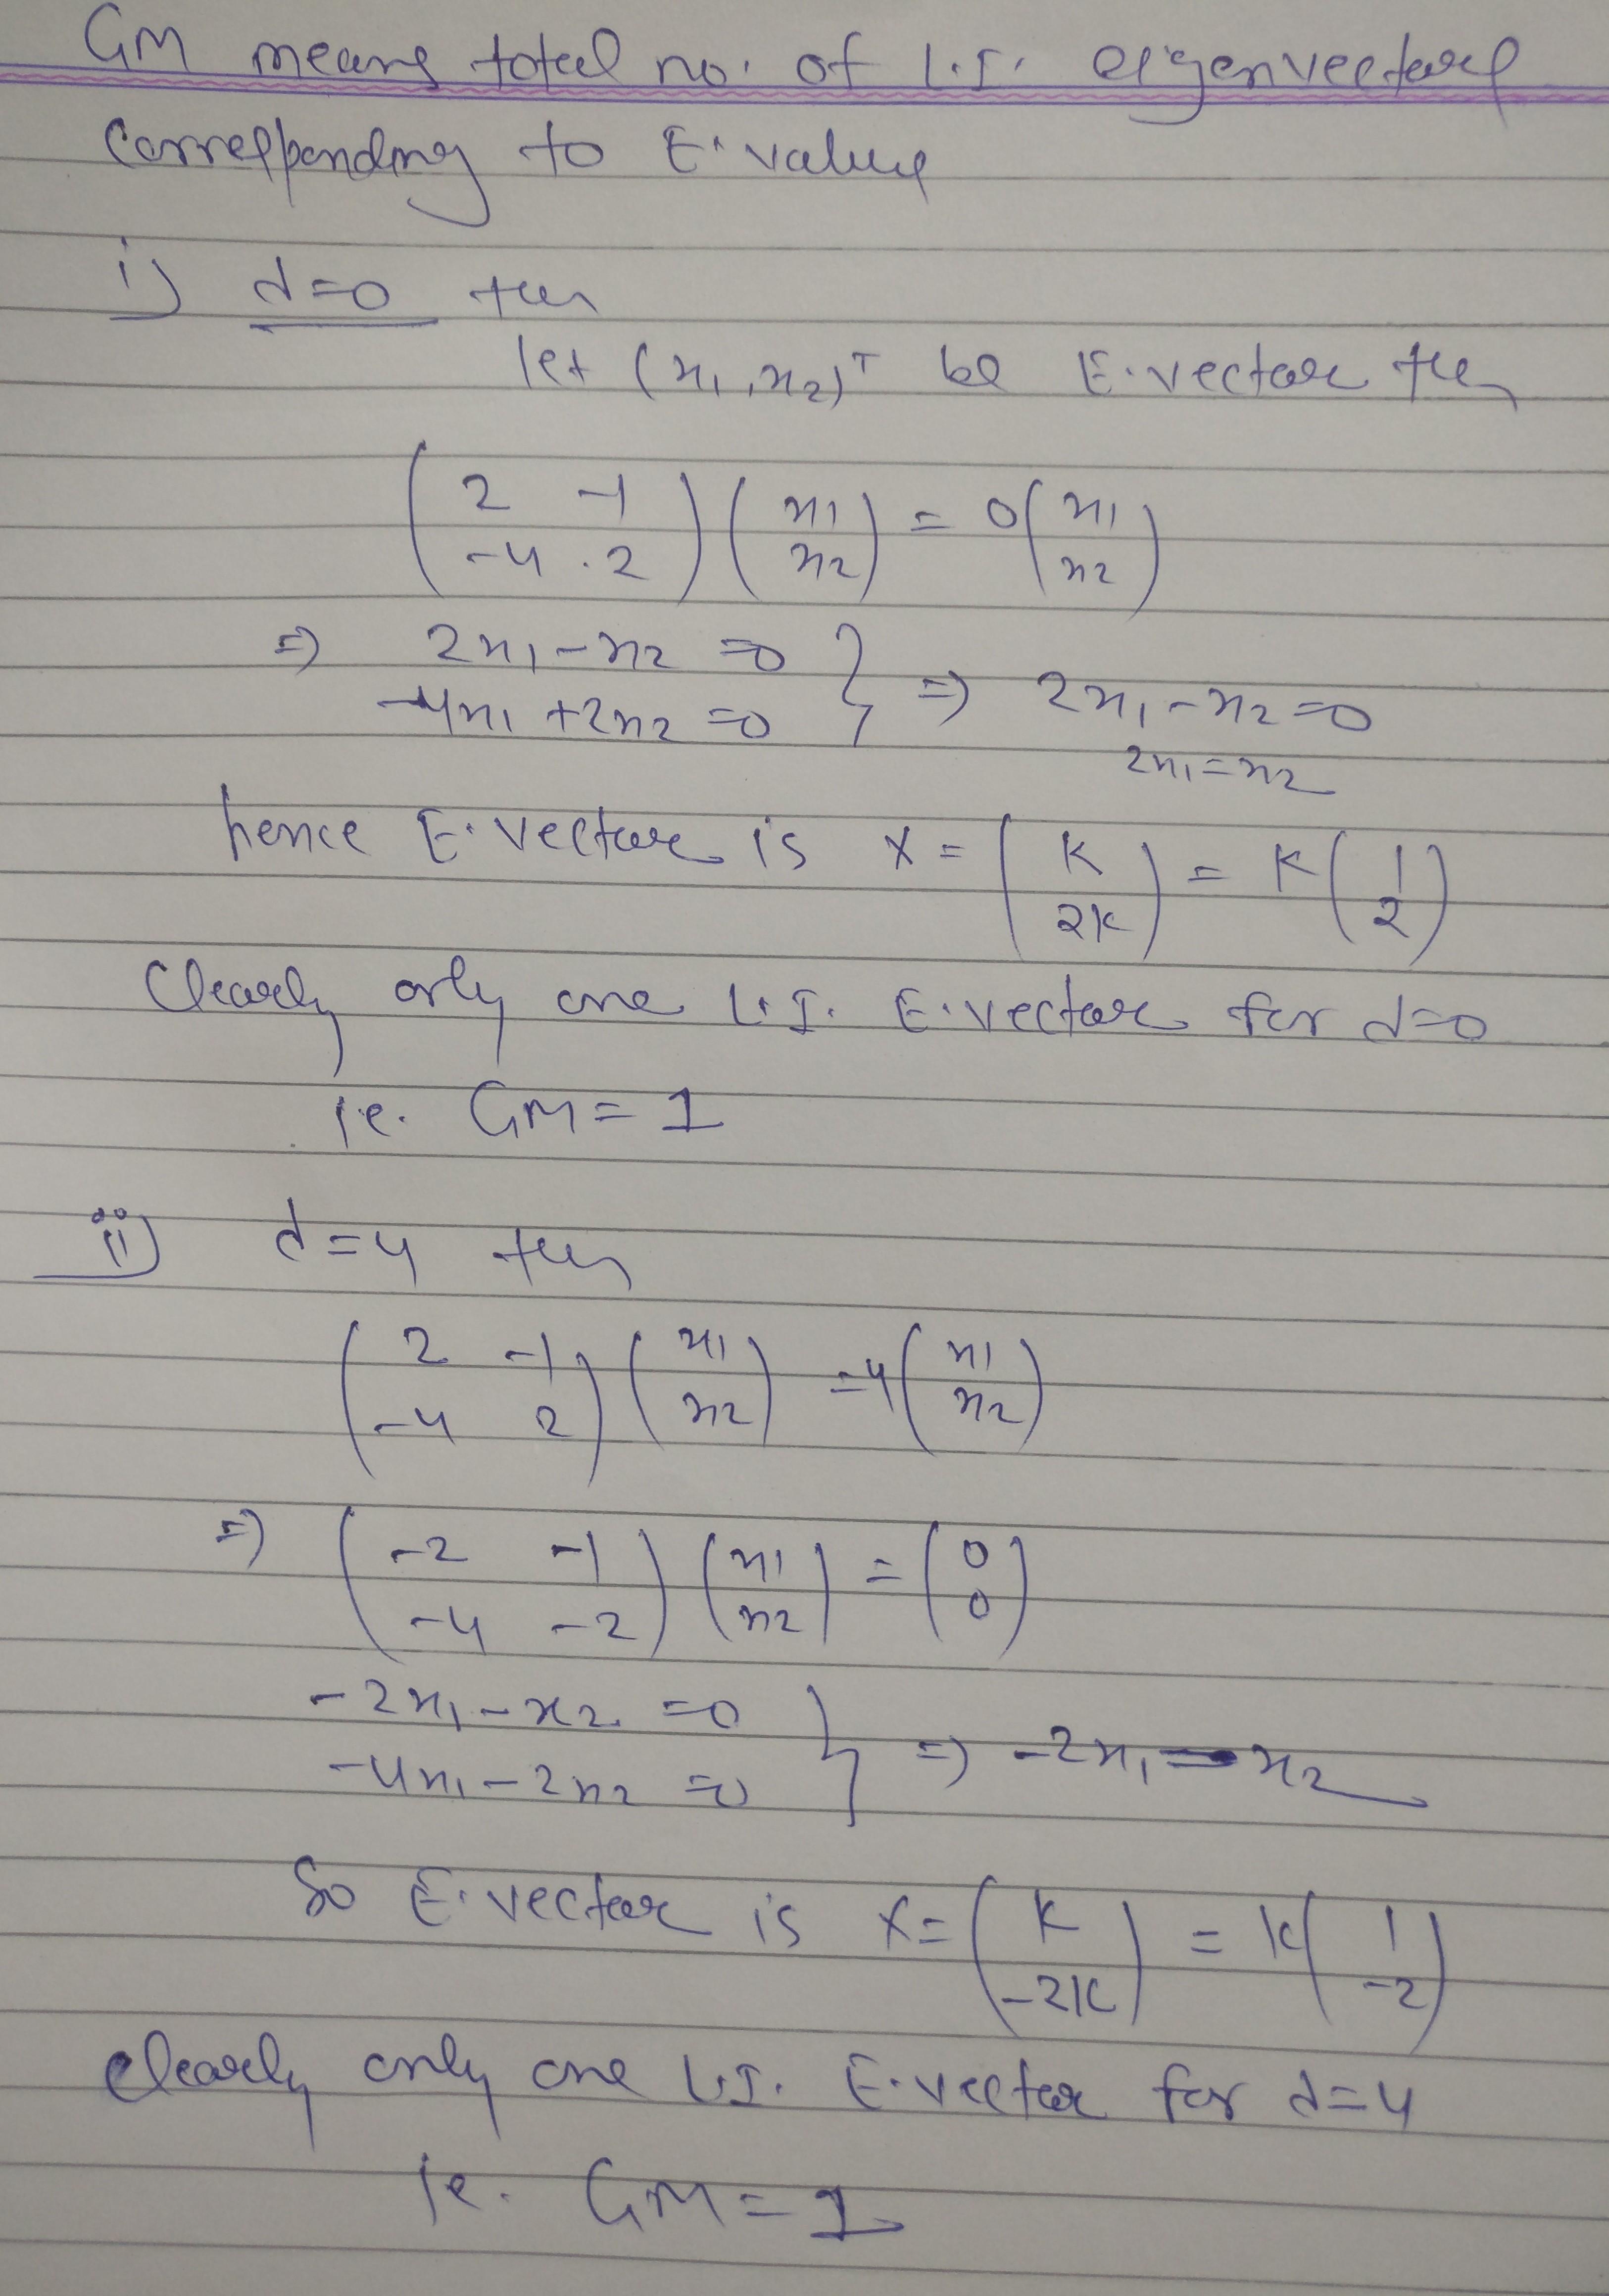 GM means total no. of L.I. eigenvectors
corresponding to E.value
i) d=0 then
let (x1, x2)ᵀ be E.vector then
( 2 -1 ; -4 2 ) ( x1 ; x2 ) = 0 ( x1 ; x2 )
=> 2x1 - x2 = 0
-4x1 + 2x2 = 0 } => 2x1 - x2 = 0
2x1 = x2
hence E.vector is X = ( K ; 2K ) = K ( 1 ; 2 )
Clearly only one L.I. E.vector for d=0
ie. GM = 1
ii) d=4 then
( 2 -1 ; -4 2 ) ( x1 ; x2 ) = 4 ( x1 ; x2 )
=> ( -2 -1 ; -4 -2 ) ( x1 ; x2 ) = ( 0 ; 0 )
-2x1 - x2 = 0
-4x1 - 2x2 = 0 } => -2x1 = x2
So E.vector is X = ( K ; -2K ) = K ( 1 ; -2 )
Clearly only one L.I. E.vector for d=4
ie. GM = 1